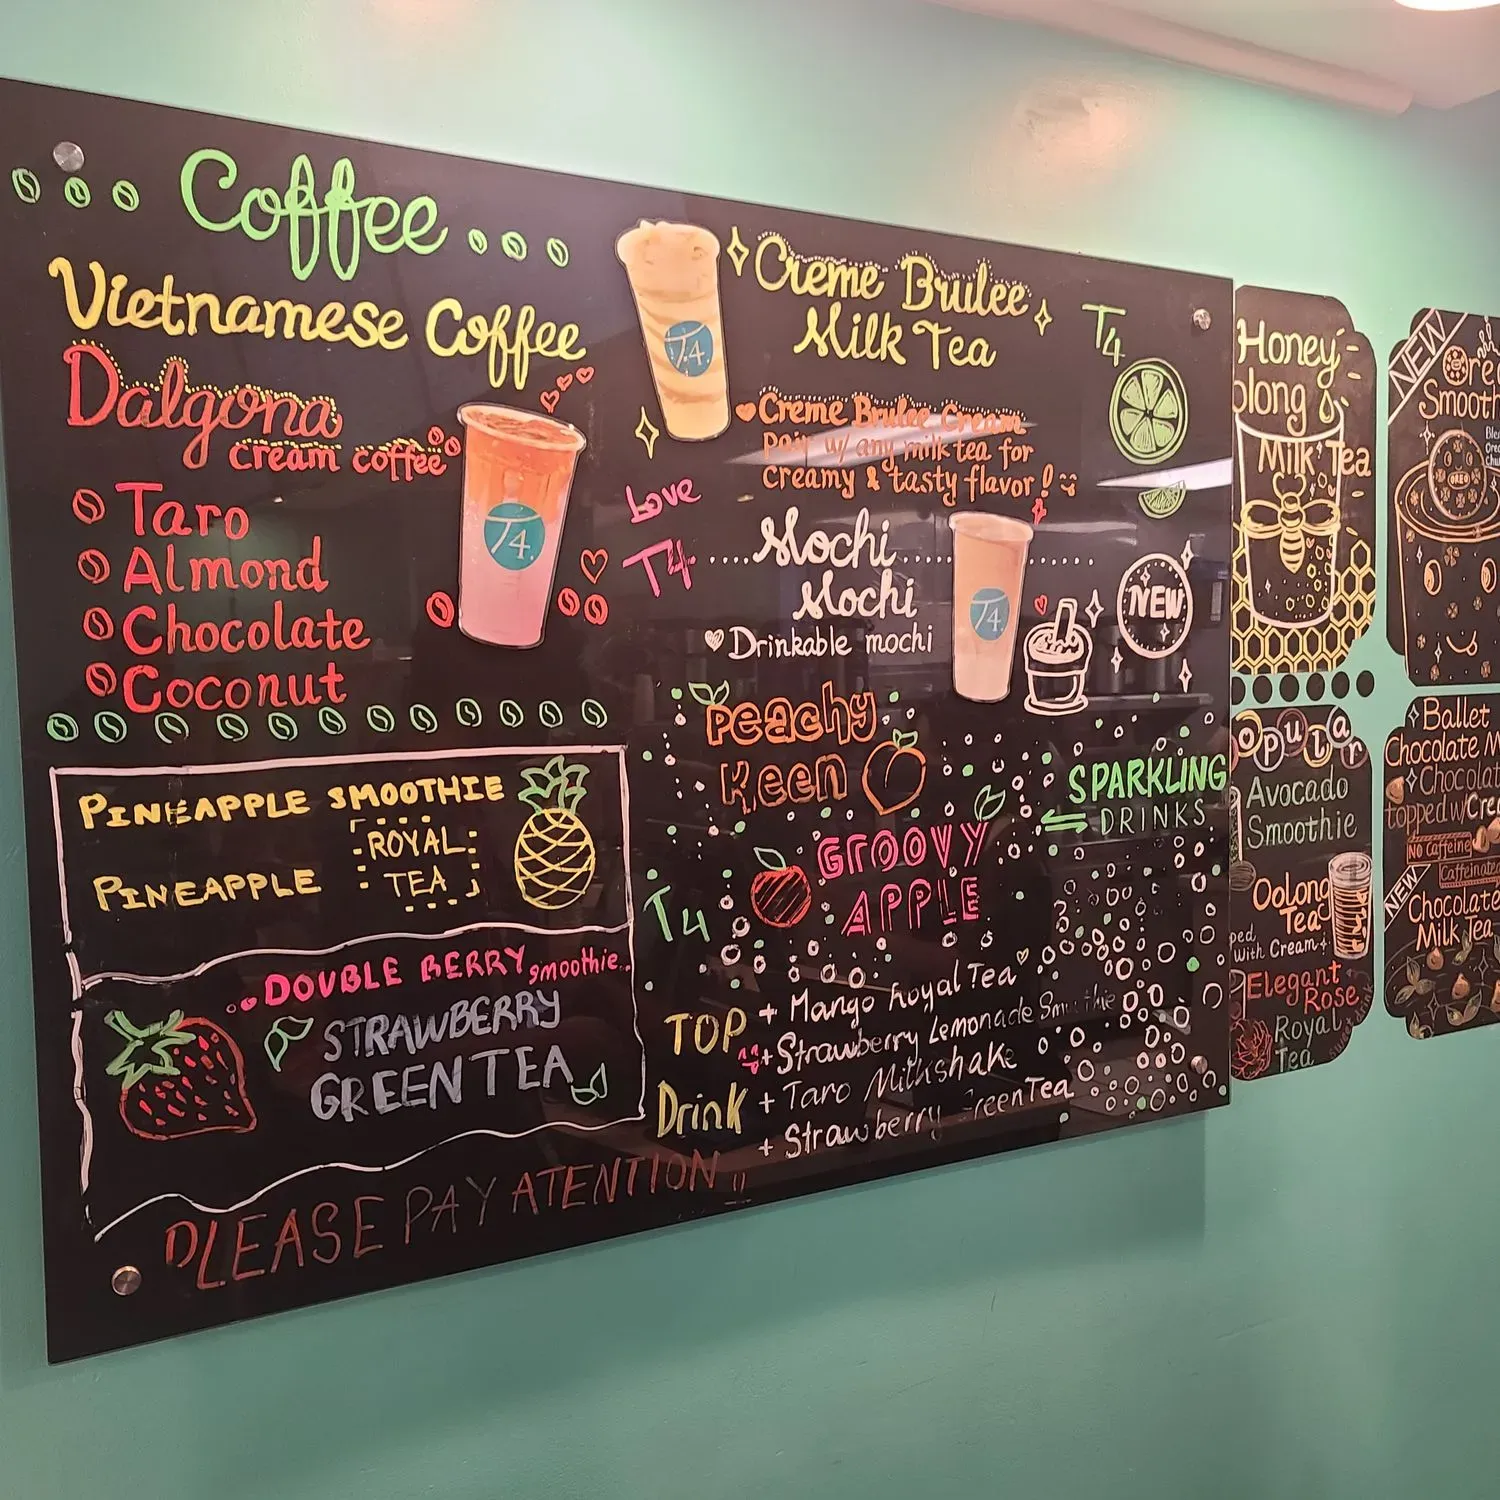 Coffee
Vietnamese Coffee
Dalgona
cream coffee
Taro
Almond
Chocolate
Coconut
T4.
PINEAPPLE SMOOTHIE
ROYAL
PINEAPPLE
TEA
DOUBLE BERRY smoothie..
STRAWBERRY
GREEN TEA
PLEASE PAY ATENTION !!
T4.
Creme Brulee
Milk Tea
T4
Creme Brulee Cream
pair w/ any milk tea for
creamy & tasty flavor!
Love
T4
Mochi
Mochi
Drinkable mochi
T4.
NEW
Peachy
Keen
SPARKLING
DRINKS
GROOVY
APPLE
T4
TOP
Drink
+ Mango Royal Tea
+ Strawberry Lemonade Smoothie
+ Taro Milkshake
+ Strawberry GreenTea
Honey-
olong
Milk Tea
opular
Avocado
Smoothie
Oolong
Tea
ped
with Cream
Elegant
Rose
Royal
Tea
NEW
Ore
Smooth
OREO
Ballet
Chocolate M
Chocolat
topped w/Cre
NO Caffeine
Caffeinate
NEW
Chocolate
Milk Tea